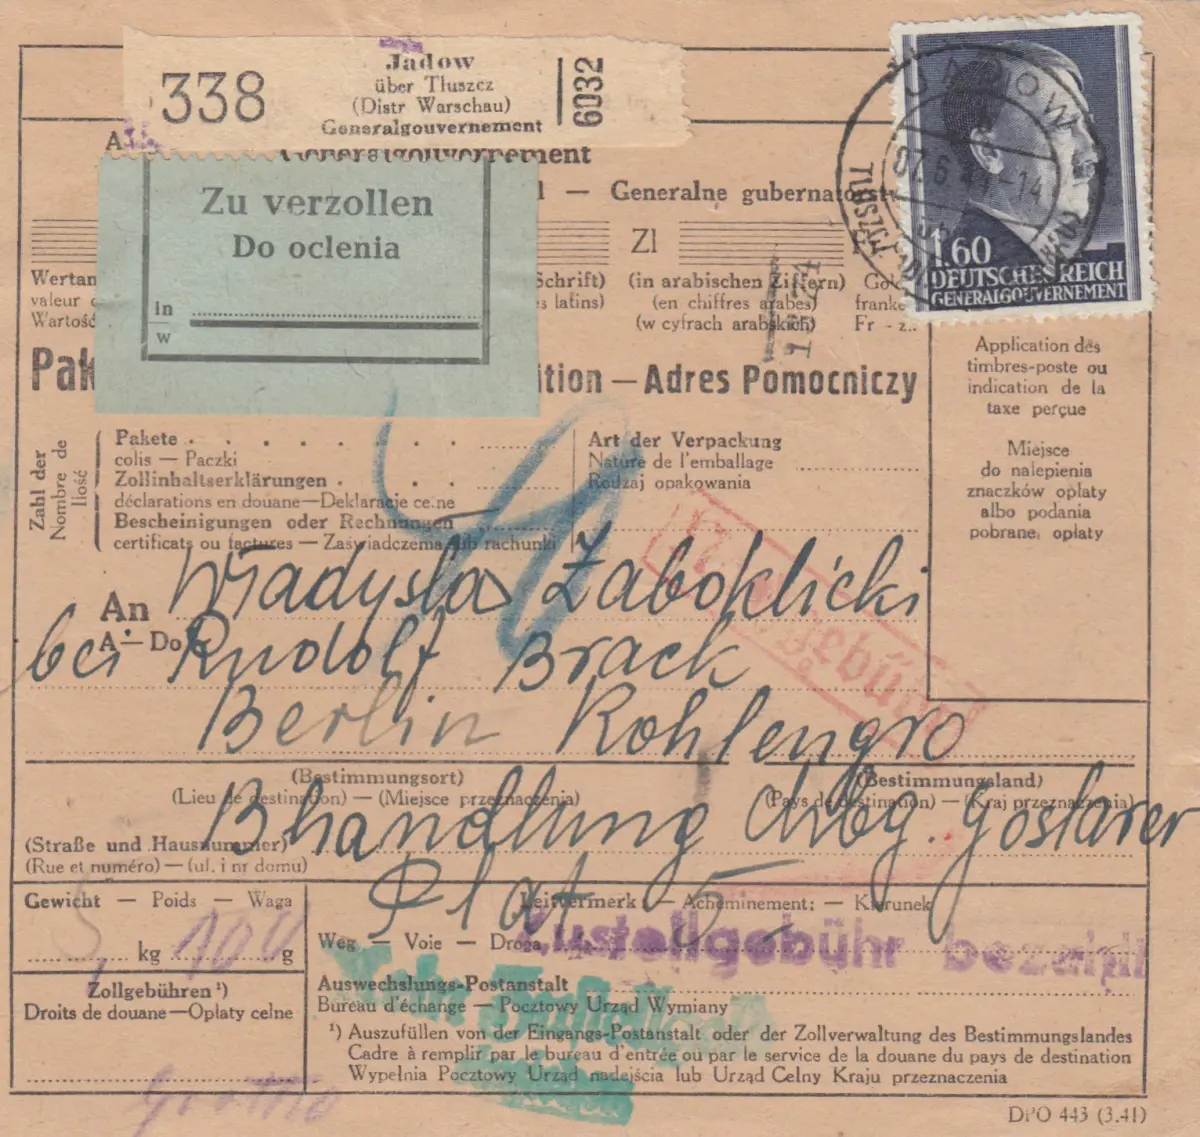 338
Jadow
über Tłuszcz
(Distr Warschau)
Generalgouvernement
6032
JADOW
07.6.44-14
1.60
DEUTSCHES REICH
GENERALGOUVERNEMENT
Generalgouvernement
— Generalne gubernatorstw
Zu verzollen
Do oclenia
in
w
Zl
Wertan
Schrift) (in arabischen Ziffern)
valeur
s latins) (en chiffres arabes) franke
Wartość
(w cyfrach arabskich) Fr - z.
Pak
ition — Adres Pomocniczy
Application des
timbres-poste ou
indication de la
taxe perçue
Miejsce
do nalepienia
znaczków opłaty
albo podania
pobrane, opłaty
Zahl der
Nombre de
Ilość
Pakete
colis — Paczki
Zollinhaltserklärungen
déclarations en douane—Deklaracje celne
Bescheinigungen oder Rechnungen
certificats ou factures — Zaświadczema lub rachunki
Art der Verpackung
Nature de l'emballage
Rodzaj opakowania
An
A — Do
Władysław Zaboklicki
bei Rudolf Brack
Berlin Kohlengro
(Bestimmungsort)
(Bestimmungsland)
(Lieu de destination) — (Miejsce przeznaczenia)
(Pays de destination) — (Kraj przeznaczenia)
Bhandlung Chbg. Goslarer
(Straße und Hausnummer)
(Rue et numéro) — (ul. i nr domu)
Plat 5
Gewicht — Poids — Waga
kg 100 g
Leitvermerk: — Acheminement: — Kierunek
Weg — Voie — Droga
Zustellgebühr bezahlt
Zollgebühren ¹)
Droits de douane—Opłaty celne
Auswechslungs-Postanstalt
Bureau d'échange — Pocztowy Urząd Wymiany
¹) Auszufüllen von der Eingangs-Postanstalt oder der Zollverwaltung des Bestimmungslandes
Cadre à remplir par le bureau d'entrée ou par le service de la douane du pays de destination
Wypełnia Pocztowy Urząd nadejścia lub Urząd Celny Kraju przeznaczenia
DPO 443 (3.41)